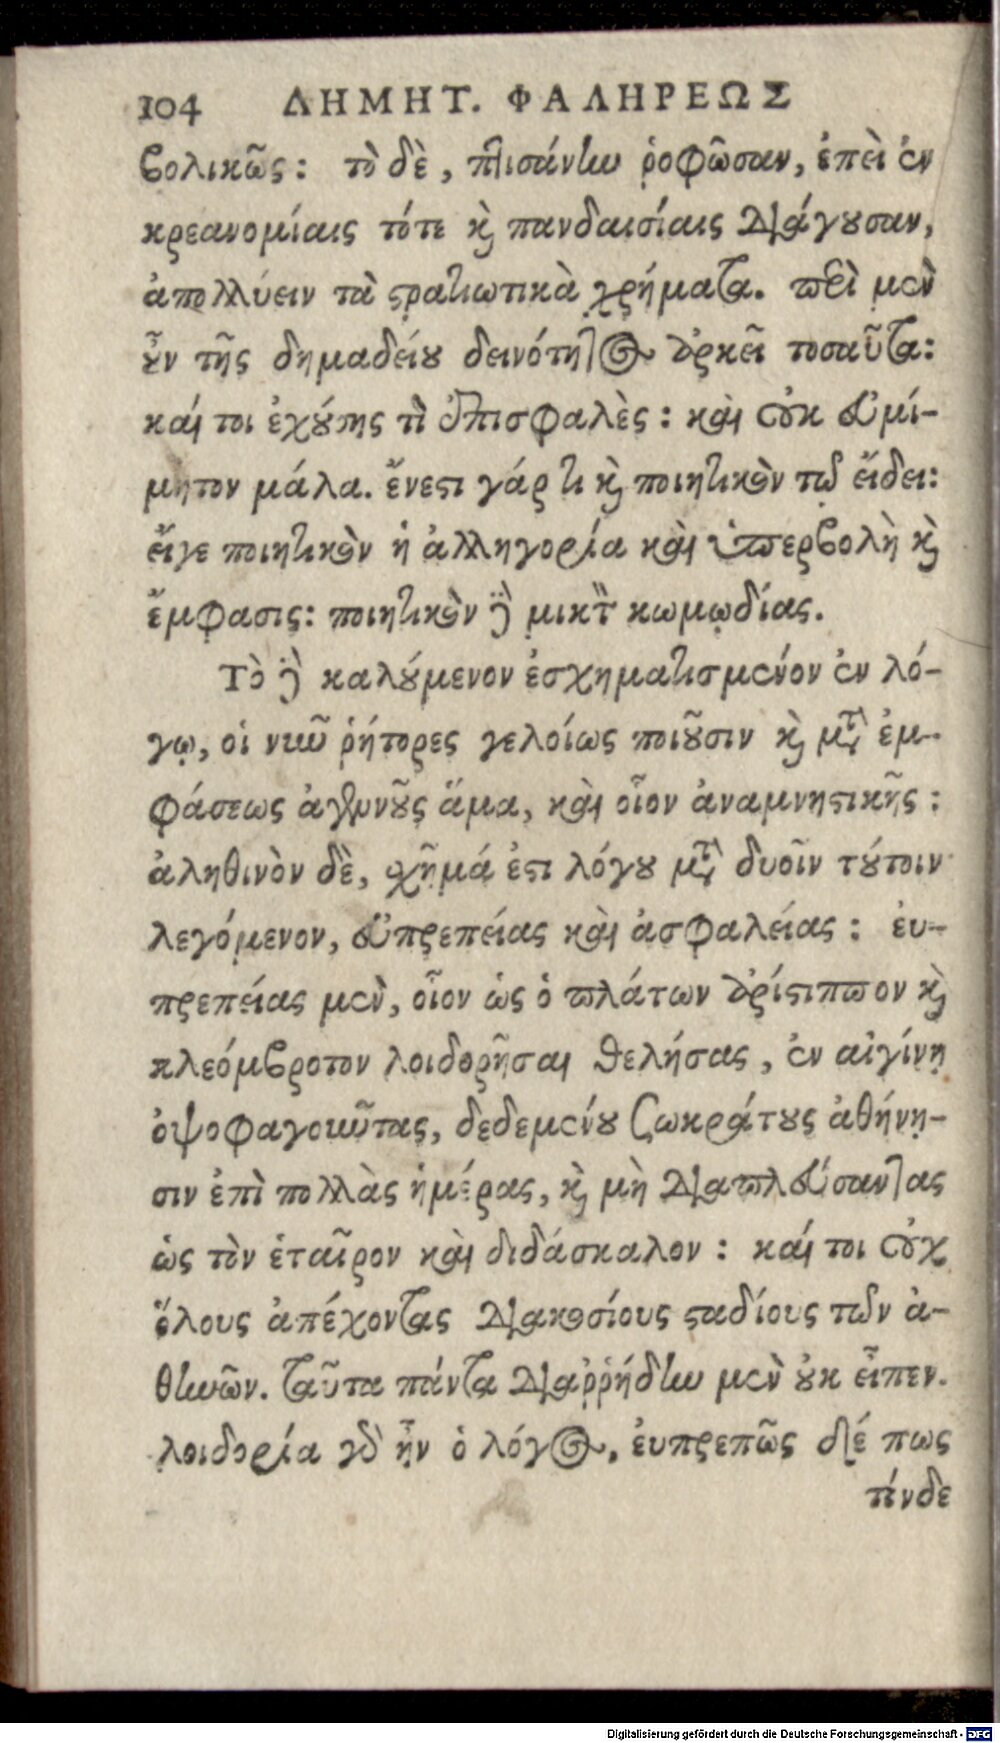 104 ΔΗΜΗΤ. ΦΑΛΗΡΕΩΣ
βολικῶς: τὸ δὲ, πτισάνην ῥοφῶσαν, ἐπεὶ ἐν
κρεανομίαις τότε καὶ πανδαισίαις διάγουσαν,
ἀπολλύειν τὰ στρατιωτικὰ χρήματα. περὶ μὲν
οὖν τῆς δημαδείου δεινότητος ἀρκεῖ τοσαῦτα:
καί τοι ἐχούσης τὶ ἐπισφαλὲς: καὶ οὐκ εὐμί-
μητον μάλα. ἔνεστι γάρ τι καὶ ποιητικὸν τῷ εἴδει:
εἴγε ποιητικὸν ἡ ἀλληγορία καὶ ὑπερβολὴ καὶ
ἔμφασις: ποιητικὸν δὲ μικτὸν κωμῳδίας.
Τὸ δὲ καλούμενον ἐσχηματισμένον ἐν λό-
γῳ, οἱ νῦν ῥήτορες γελοίως ποιοῦσιν καὶ μετὰ ἐμ-
φάσεως ἀγεννοῦς ἅμα, καὶ οἷον ἀναμνηστικῆς:
ἀληθινὸν δὲ, σχῆμά ἐστι λόγου μετὰ δυοῖν τούτοιν
λεγόμενον, εὐπρεπείας καὶ ἀσφαλείας: ἐυ-
πρεπείας μὲν, οἷον ὡς ὁ πλάτων ἀρίστιππον καὶ
κλεόμβροτον λοιδορῆσαι θελήσας, ἐν αἰγίνῃ
ὀψοφαγοῦντας, δεδεμένου σωκράτους ἀθήνη-
σιν ἐπὶ πολλὰς ἡμέρας, καὶ μὴ διαπλεύσαντας
ὡς τὸν ἑταῖρον καὶ διδάσκαλον: καί τοι οὐχ
ὅλους ἀπέχοντας διακοσίους σταδίους τῶν ἀ-
θηνῶν. ταῦτα πάντα διαῤῥήδην μὲν οὐκ εἶπεν.
λοιδορία γὰρ ἦν ὁ λόγος, ἐυπρεπῶς δέ πως
τόνδε
Digitalisierung gefördert durch die Deutsche Forschungsgemeinschaft - DFG